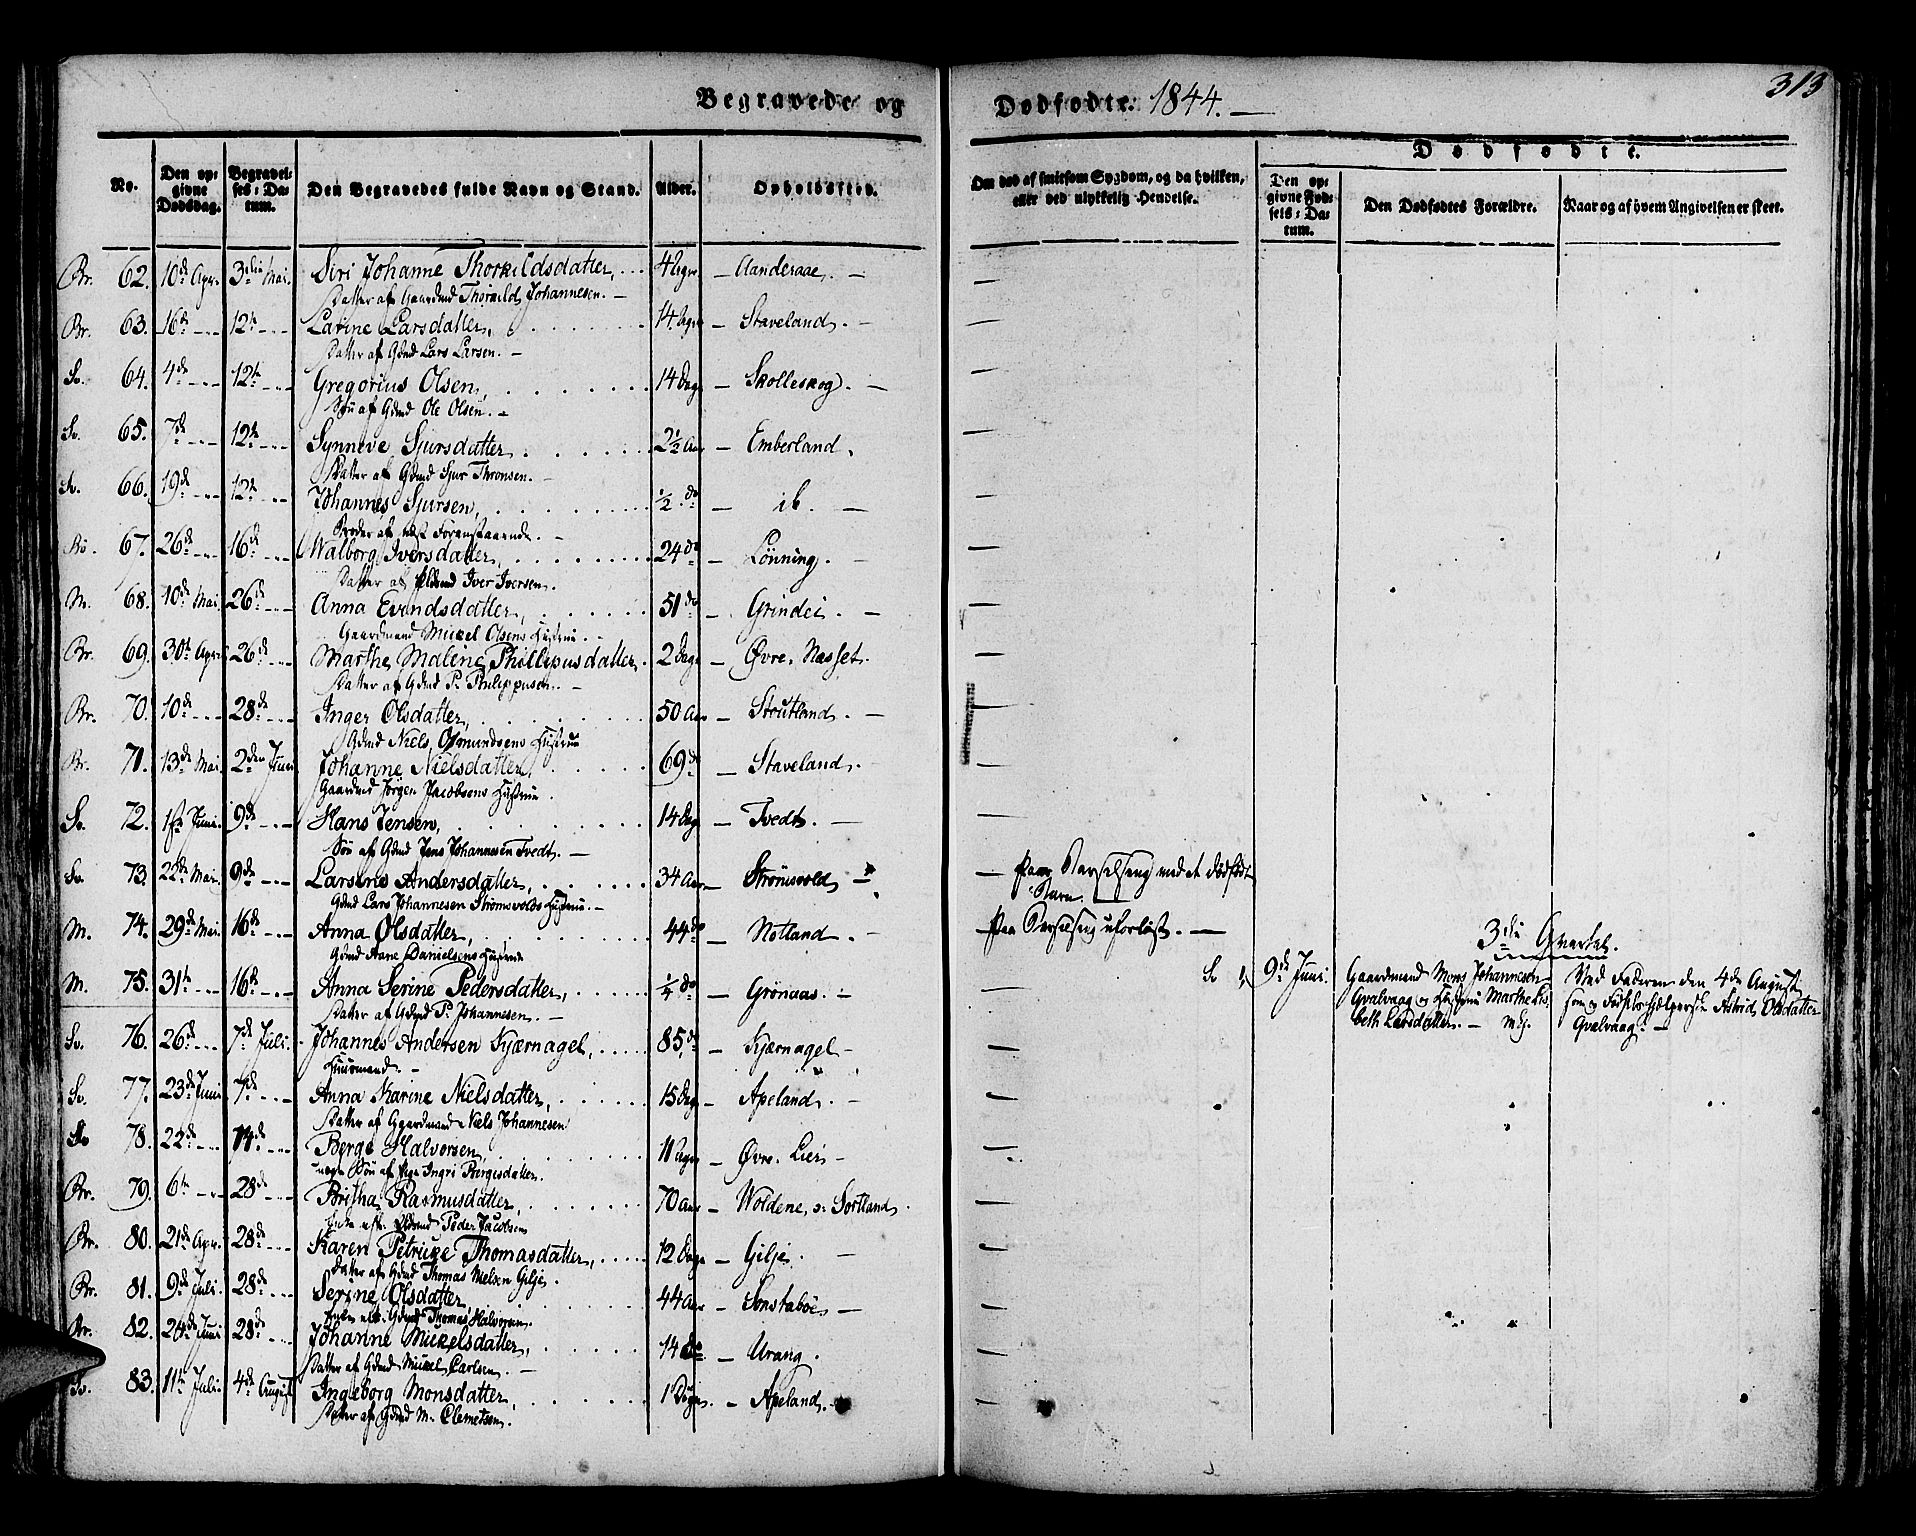 Begravede og
Dødfødte. 1844. —
313
No.
Den opgivne Dødsdag.
Begravelses-Datum.
Den Begravedes fulde Navn og Stand.
Alder.
Opholdssted.
Om død af smitsom Sygdom, og da hvilken, eller ved ulykkelig Hendelse.
Dødfødte.
Den opgivne Fødsels-Datum.
Den Dødfødtes Forældre.
Naar og af hvem Angivelsen er skeet.
Br. 62. 10de Apr. 3die Mai. Siri Johanne Thorkildsdatter, 4 Uger — Aanderaae. —
Datter af Gaardmd Thorkild Johannesen. —
Br. 63. 16de 12te Larine Larsdatter, 14 Uger — Staveland. —
Datter af Gdmd Lars Larsen. —
Sv. 64. 4de 12te Gregorius Olsen, 14 Dage — Skolleskog. —
Søn af Gdmd Ole Olsen. —
Sv. 65. 7de 12te Synneve Sjursdatter. 2½ Aar — Emberland.
Datter af Gdmd Sjur Thronsen. —
Sv. 66. 19de 12te Johannes Sjursen, ½ do — ib. —
Broder af næst Foranstaaende. —
Bø. 67. 26de 16de Walborg Iversdatter, 24 do — Lønning. —
Datter af Iver Iversen.
M. 68. 10de Mai 26de Anna Evindsdatter, 51 do — Grindei. —
Gaardmand Mickel Olsens Hustrue. —
Br. 69. 30te Apr. 26de Marthe Maline Phillipusdatter. 2 Dage — Øvre Næsset.
Datter af Gdmd P. Philippusen. —
Br. 70. 10de 28de Inger Olsdatter, 50 Aar — Stoutland. —
Gdmd Niels Osmundsens Hustrue
Br. 71. 13de Mai. 2den Juni Johanne Nielsdatter, 69 do — Staveland. —
Gaardmd Jørgen Jacobsens Hustrue.
Sv. 72. 1ste Juni. 9de Hans Jensen, 14 Dage — Tvedt. —
Søn af Gdmd Jens Johannesen Tvedt. —
Sv. 73. 22de Mai. 9de Larsine Andersdatter, 34 Aar — Strømsvold — — paa Barselseng med et dødfødt
Barn.
Gdmd Lars Johannesen Strømsvolds Hustrue. —
M. 74. 29de Mai. 16de Anna Olsdatter, 44 do — Notland. — — paa Barselseng uforløst. —
Gdmd Aane Danielsens Hustrue
3die Qvartal.
M. 75. 31te 16de Anna Serine Pedersdatter, ¼ do — Grønaas. —
Datter af Gdmd P. Johannesen. —
Sv 1, 9de Juni. Gaardmand Mons Johannesen
Qvalvaag og Hustrue Marthe Elisbeth Larsdatter. —
Ved Faderen den 4de August
som og Fødselshjælpersk Astrid Olsdatter
Qvalvaag. —
Sv. 76. 26de 7de Juli. Johannes Andersen Kjærnagel, 85 do — Kjærnagel —
Huusmand. —
Sv. 77. 23de Juni 7de Anna Karine Nielsdatter, 15 Dage — Apeland. —
Datter af Gaardmand Niels Johannesen
Sv 78. 22de 14de Berge Halvorsen, 11 Uger — Øvre Lier —
uægte Søn af Pige Ingri Bergesdatter.
Br. 79. 6te 28de Britha Rasmusdatter, 70 Aar — Woldene, v. Sortland.
Enke efter Peder Jacobsen
Br. 80. 21de Apr. 28de Karen Petricke Thomasdatter, 12 Dage — Gilje. —
Datter af Gdmd Thomas Nielsen Gilje.
Br. 81. 9de Juli. 28de Serine Olsdatter 44 Aar — Sonstabøe —
Enke eft. Gdmd Thomas Halvorsen.
Br. 82. 24de Juni 28de Johanne Mickelsdatter, 14 do — Urang.
Datter af Gdmd Mickel Carlsen. —
Sv. 83. 11te Juli. 4de August Ingeborg Monsdatter, 1 Døgn — Apeland.
Datter af Gdmd M. Clemetsen.